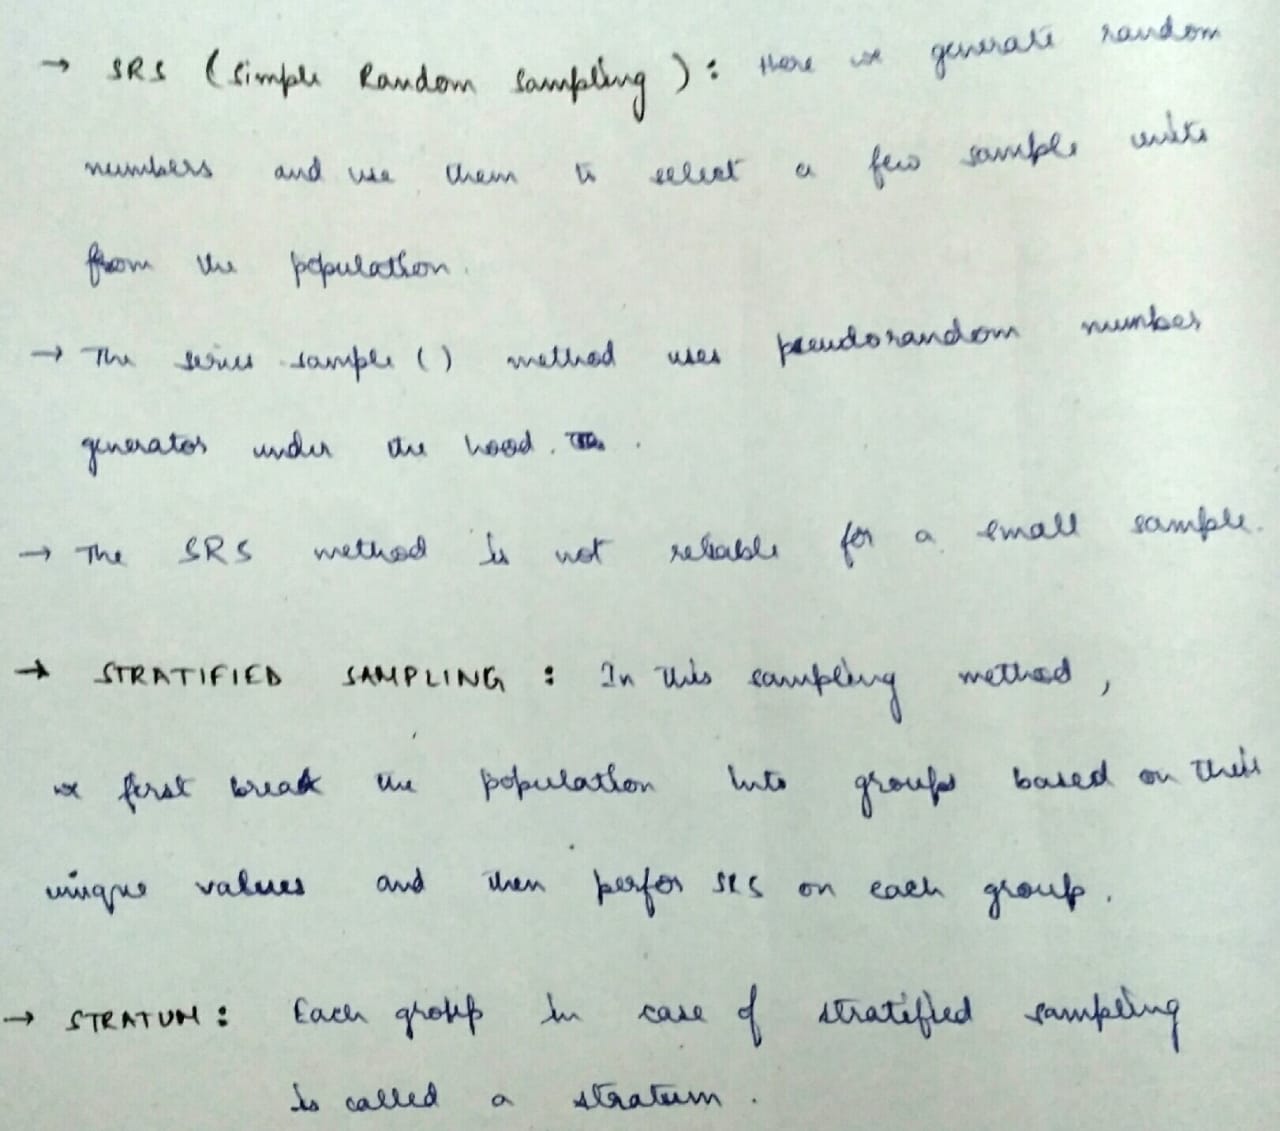 → SRS (Simple Random Sampling): Here we generate random
numbers and use them to select a few sample units
from the population.
→ The series sample() method uses pseudorandom number
generator under the hood.
→ The SRS method is not reliable for a small sample.
→ STRATIFIED SAMPLING: In this sampling method,
we first break the population into groups based on their
unique values and then perfor SRS on each group.
→ STRATUM: Each group in case of stratified sampling
is called a stratum.